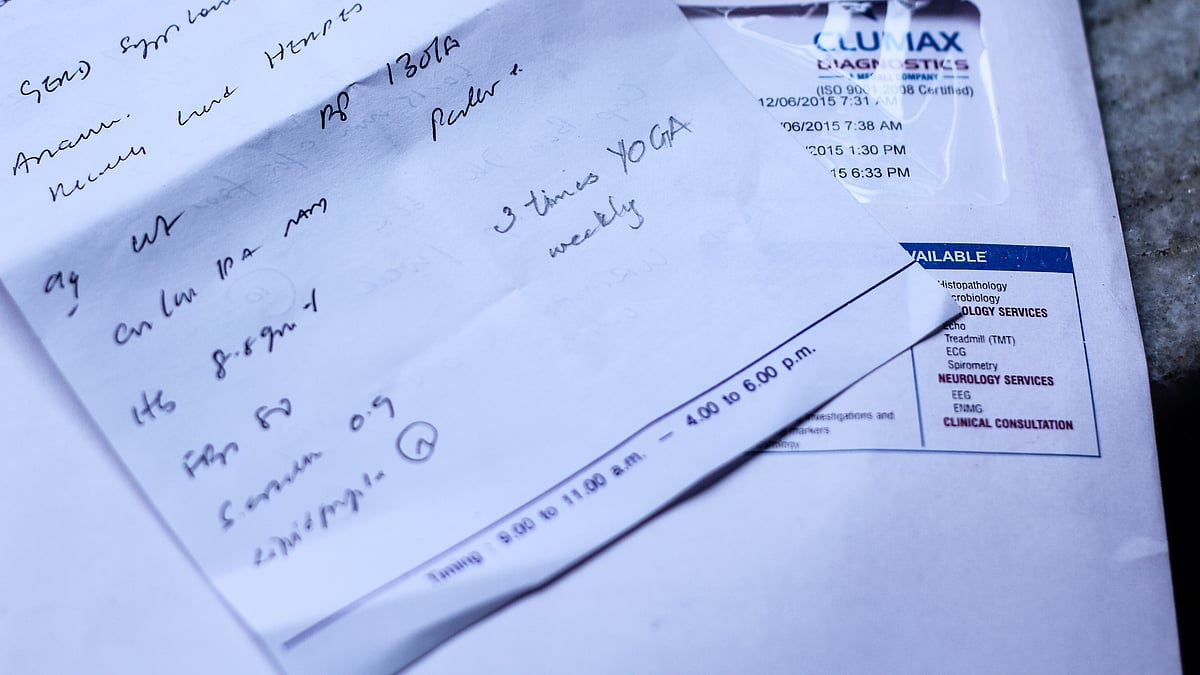 GERD Symptoms
Anaemia.
Recently had HERPES
BP 130/A
Pallor
O/E Wt
CVS
Hb 8.8gm
FBS 80
S. creatinine 0.9
Lipid profile N
3 times YOGA
weekly
Timing : 9.00 to 11.00 a.m. — 4.00 to 6.00 p.m.
CLUMAX
DIAGNOSTICS
A MEDALL COMPANY
(ISO 9001 2008 Certified)
12/06/2015 7:31 AM
/06/2015 7:38 AM
/2015 1:30 PM
15 6:33 PM
VAILABLE
Histopathology
crobiology
OLOGY SERVICES
Echo
Treadmill (TMT)
ECG
Spirometry
NEUROLOGY SERVICES
EEG
ENMG
CLINICAL CONSULTATION
investigations and
markers